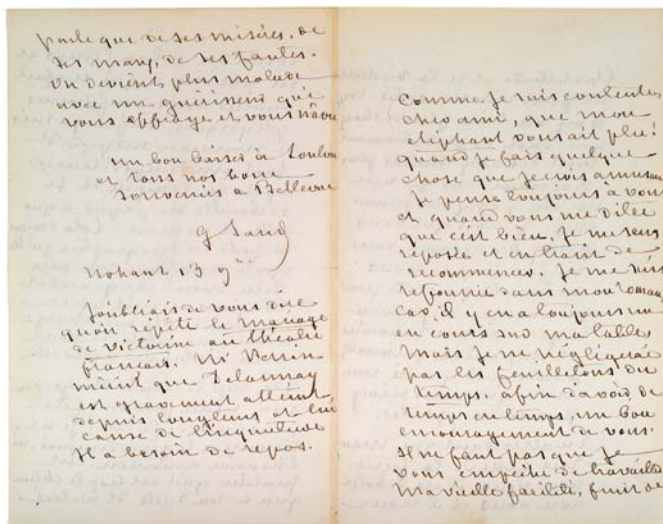 parle que de ses misères, de
ses maux, de ses fautes.
on devient plus malade
avec un guérisseur qui
vous effraye et vous navre
un bon baiser à
et tous nos bons
souvenirs à Bellevue
G Sand
Nohant 13
J'oubliais de vous dire
qu'on répète le mariage
de victorine au théâtre
français. Mr Perrin
m'écrit que Delaunay
est gravement atteint
depuis longtems et lui
cause de l'inquiétude
Il a besoin de repos.
Comme je suis contente,
cher ami, que mon
éléphant vous ait plu!
quand je fais quelque
chose que je crois amusant
Je pense toujours à vous
et quand vous me dites
que c'est bien, je me sens
reposée et en train de
recommencer. Je me suis
retournée dans mon roman
car il y en a toujours un
en cours sur ma table
mais je ne négligerai
pas les feuilletons du
temps, afin d'avoir de
temps en temps, un bon
encouragement de vous.
Il ne faut pas que je
vous empêche de travailler
Ma vieille facilité, fruit de